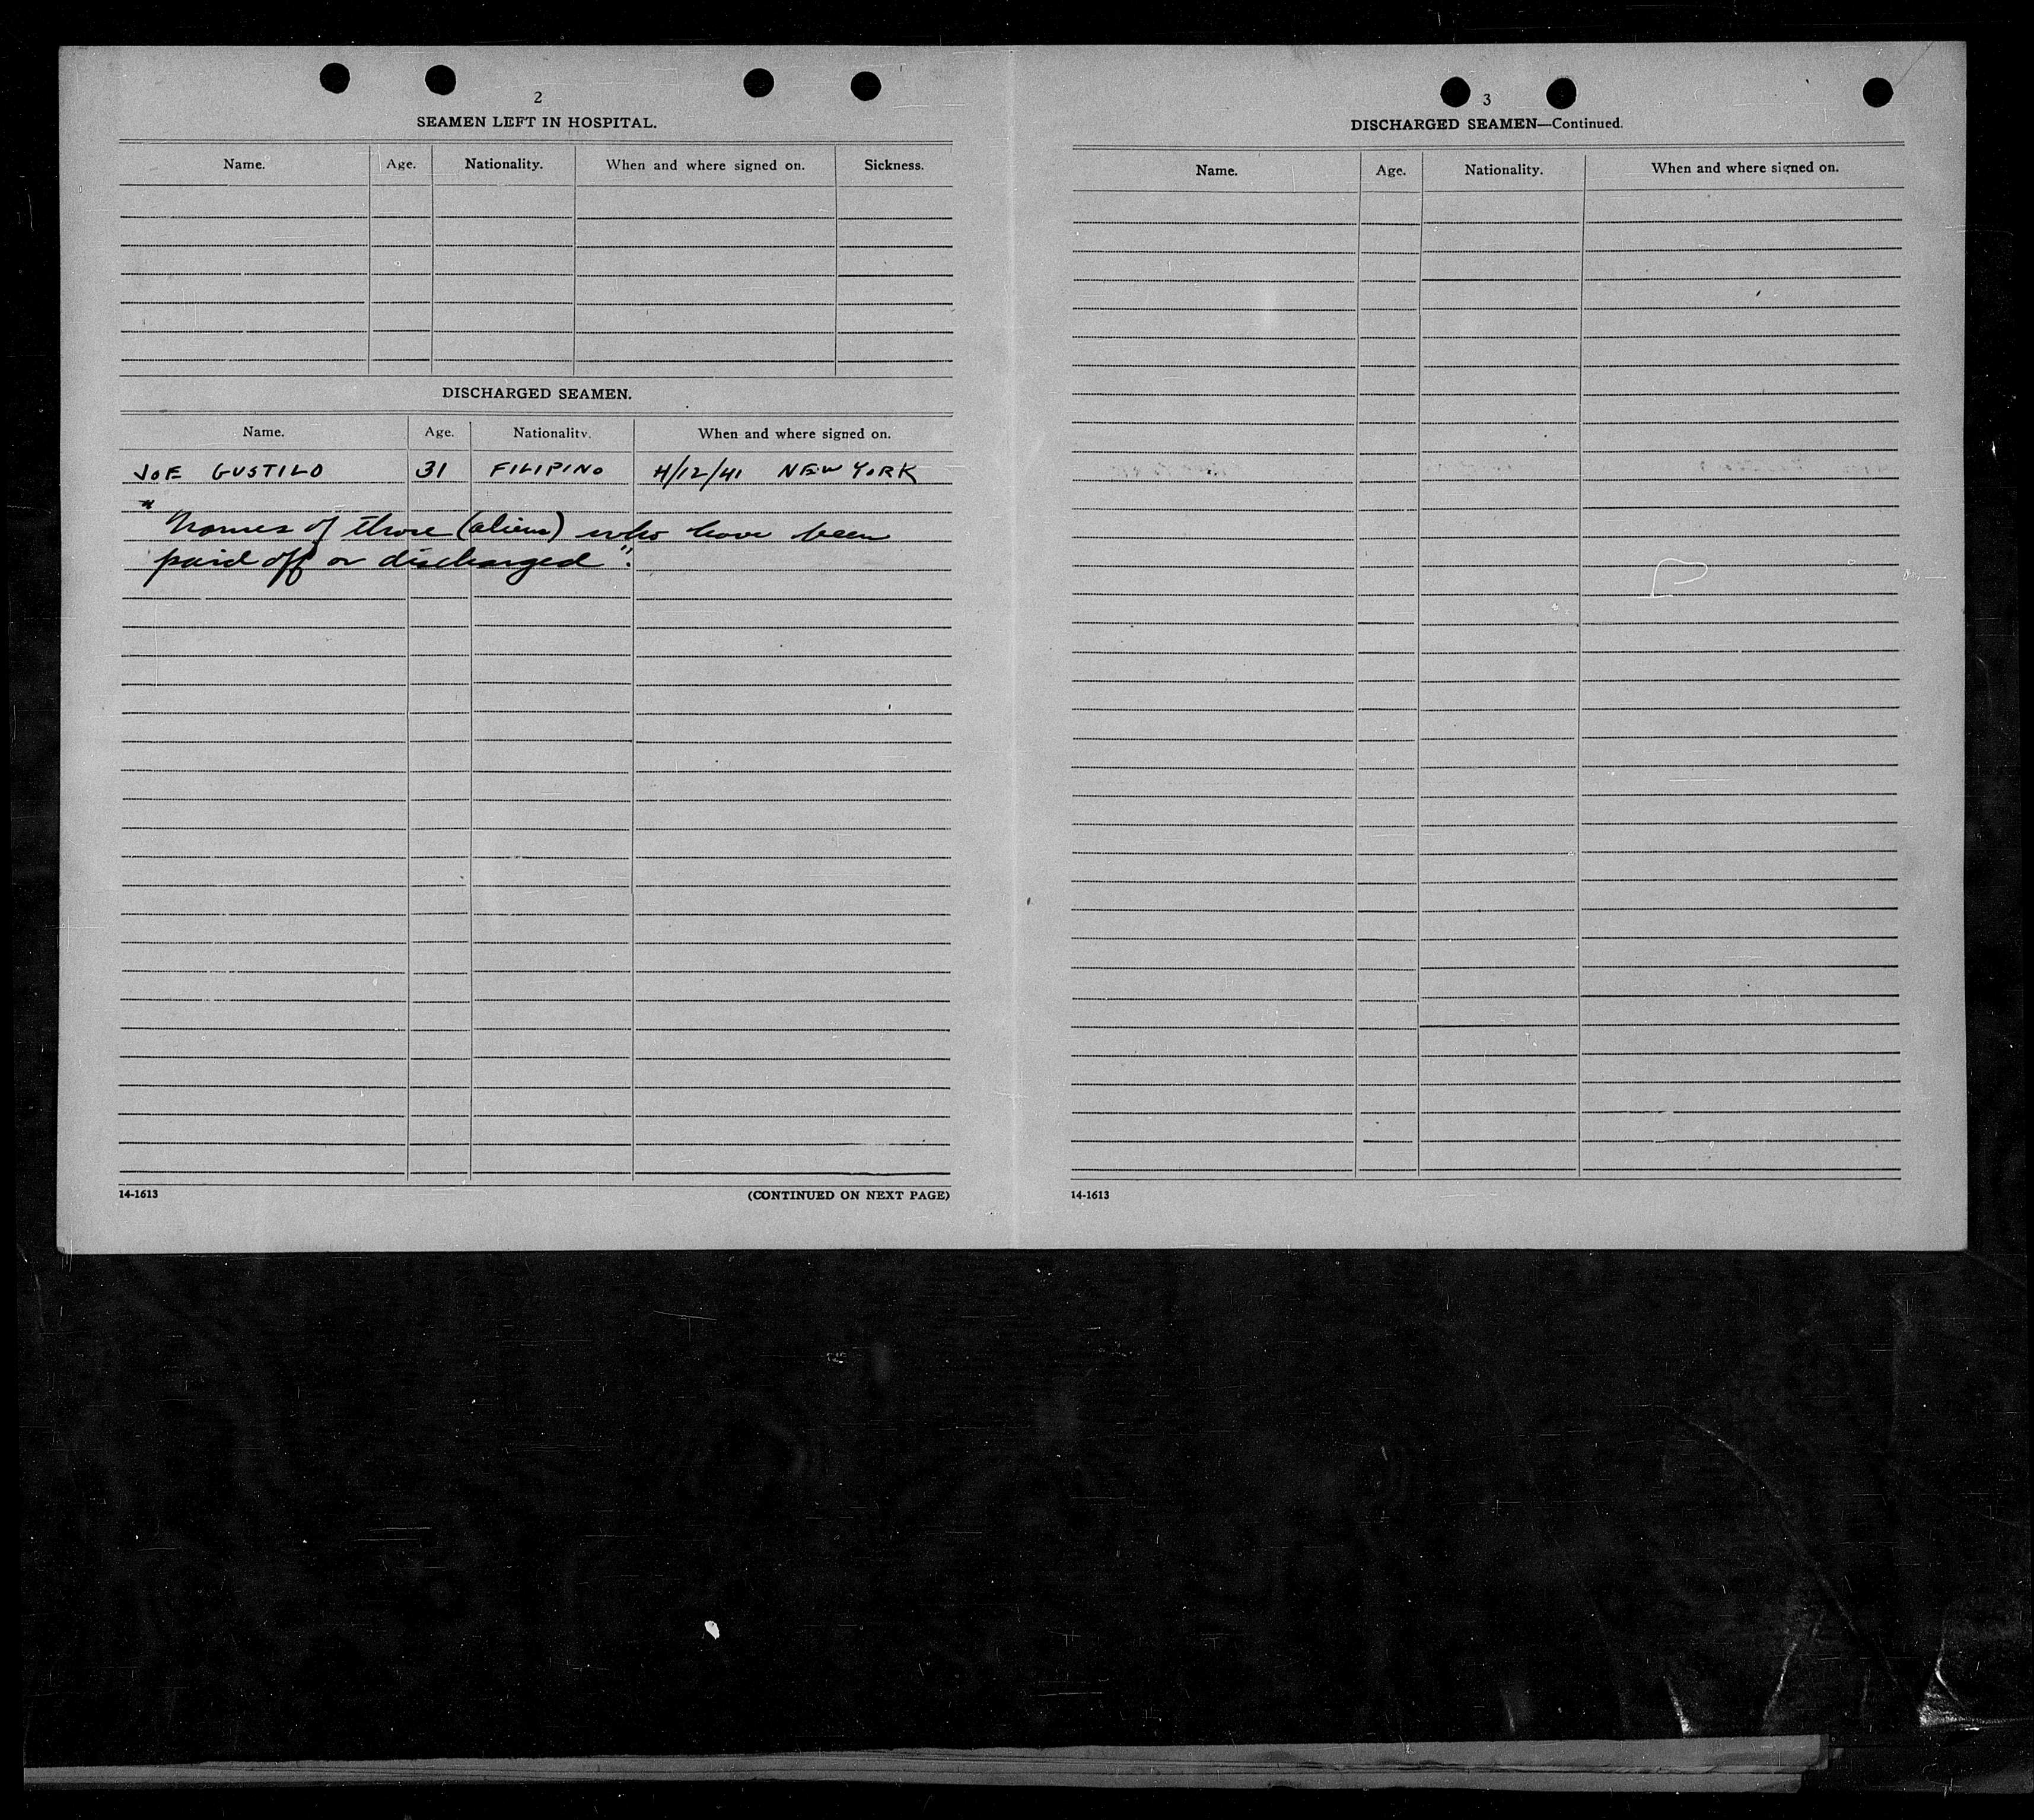 2
SEAMEN LEFT IN HOSPITAL.
Name. Age. Nationality. When and where signed on. Sickness.
DISCHARGED SEAMEN.
Name. Age. Nationality. When and where signed on.
JOE GUSTILO 31 FILIPINO 4/12/41 NEW YORK
"Names of those (aliens) who have been
paid off or discharged".
14-1613 (CONTINUED ON NEXT PAGE)
3
DISCHARGED SEAMEN—Continued.
Name. Age. Nationality. When and where signed on.
14-1613